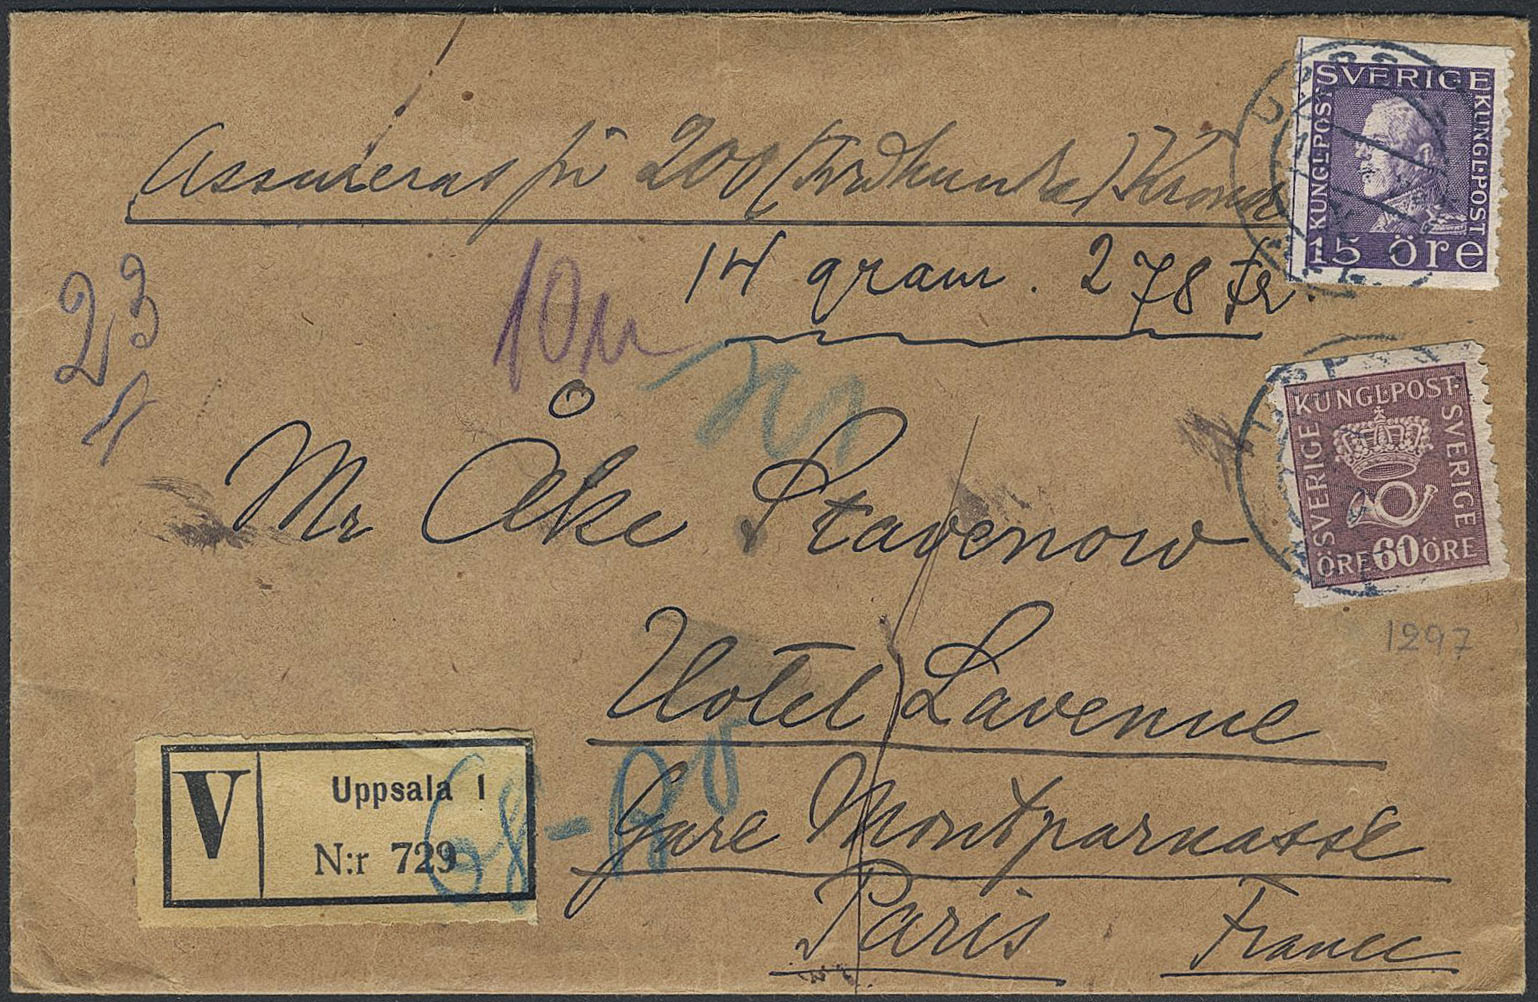 Assureras för 200 (Tvåhundra) Kronor
14 gram. 278 fr.
10
23
Mr Åke Stavenow
Hotel Lavenue
Gare Montparnasse
Paris France
V
Uppsala 1
N:r 729
SVERIGE
KUNGL-POST
KUNGL-POST
15 öre
KUNGL-POST
SVERIGE
SVERIGE
ÖRE 60 ÖRE
1297